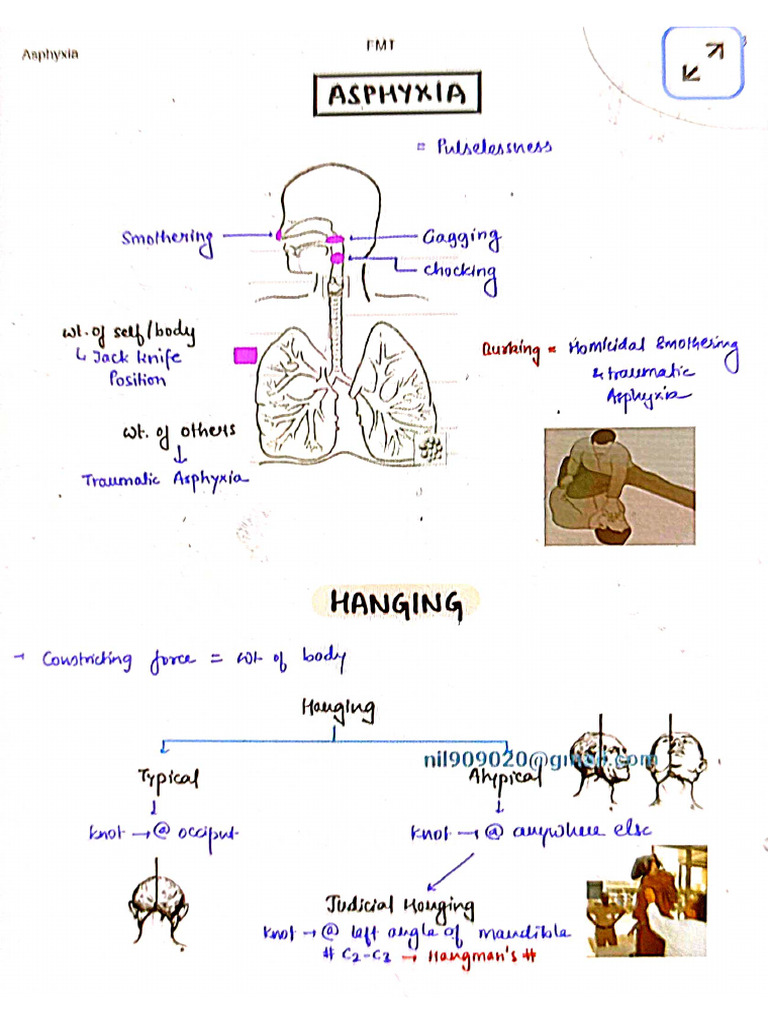 Asphyxia
FMT
ASPHYXIA
= Pulselessness
Smothering
Gagging
chocking
wt. of self/body
↳ Jack knife
Position
Burking = Homicidal Smothering
& traumatic
Asphyxia
wt. of others
↓
Traumatic Asphyxia
HANGING
→ Constricting force = wt. of body
Hanging
nil909020@gmail.com
Typical
Atypical
↓
↓
knot → @ occiput
knot → @ anywhere else
Judicial Hanging
knot → @ left angle of mandible
# C2-C3 → Hangman's #